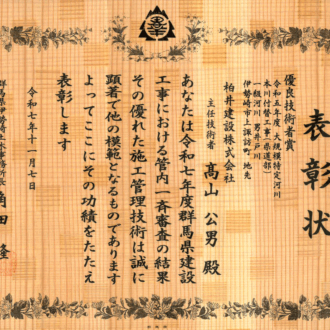 表彰状
優良技術者賞
令和五年度 大規模特定河川
本川付替工事（県道部）
一級河川 男井戸川
伊勢崎市上諏訪町 地先
柏井建設株式会社
主任技術者 高山 公男 殿
あなたは令和七年度群馬県建設
工事における管内一斉審査の結果
その優れた施工管理技術は誠に
顕著で他の模範となるものであります
よってここにその功績をたたえ
表彰します
令和七年十一月七日
角田 隆